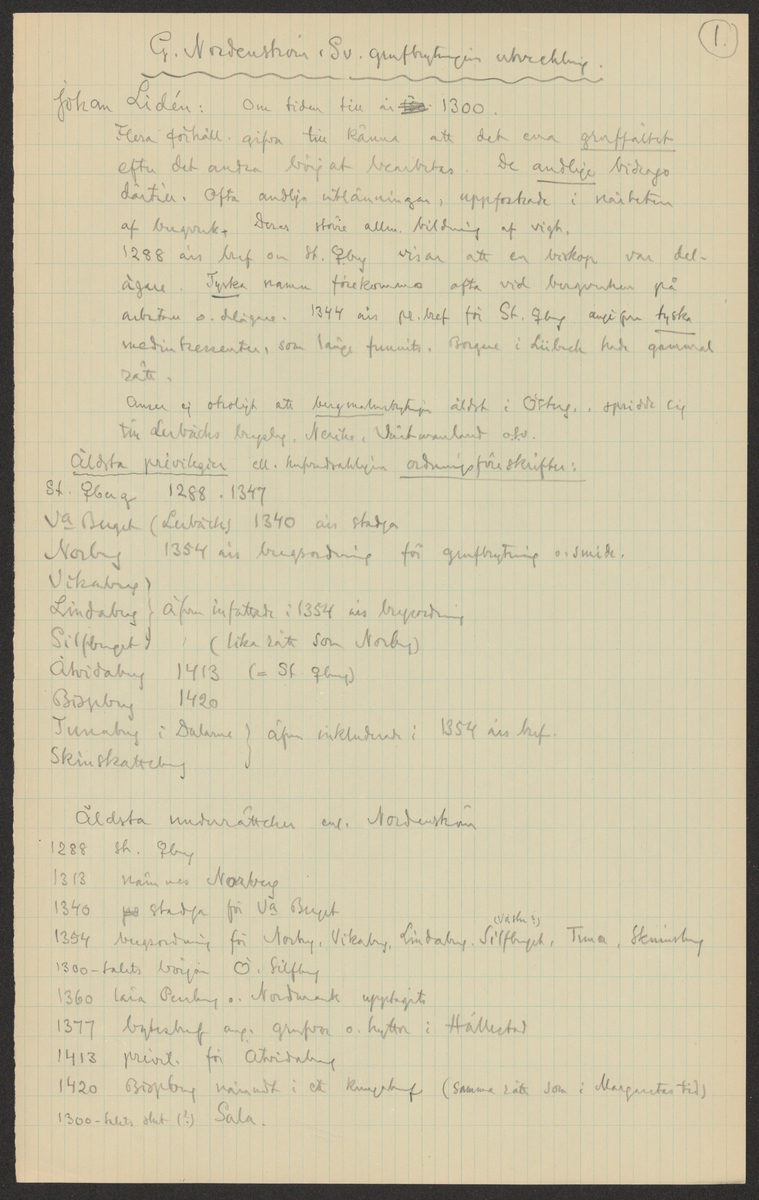 1.
G. Nordenström, Sv. grufbrytningens utveckling.
Johan Lidén: Om tiden till år 1300.
Flera förhåll. gifva till känna att det ena gruffältet
efter det andra börjat bearbetas. De andliga bidrogo
därtill. Ofta andliga utlänningar, uppfostrade i närheten
af bergverk. Deras större allm. bildning af vigt.
1288 års bref om St. Kbg visar att en biskop var del-
ägare. Tyska namn förekomma ofta vid bergverken på
arbetare o. delägare. 1344 års pr.bref för St. Kbg angifva tyska
medintressenter, som länge funnits. Borgare i Lübeck hade gammal
rätt.
Anser ej otroligt att bergmalmsbrytningen äldst i Österg., spridde sig
till Lerbäcks bergslag, Nerike, Västmanland osv.
Äldsta privilegier ell. ordningsföreskrifter:
St. Kberg 1288. 1347
Va Berget (Lerbäck) 1340 års stadga
Norberg 1354 års bergsordning för grufbrytning o. smide.
Vikaberg
Lindaberg } äfven infattade i 1354 års bergsordning
Silfberget (lika rätt som Norberg)
Åtvidaberg 1413 (= St. Kberg)
Bispberg 1420
Tunaberg i Dalarne } äfven inkluderade i 1354 års bref.
Skinskatteberg
Äldsta underrättelser enl. Nordenström
1288 St. Kberg
1313 nämnes Norberg
1340 stadga för Va Berget
1354 bergsordning för Norberg, Vikaberg, Lindaberg, Silfberget, (Västra?) Tuna, Skinnsberg
1300-talets början Ö. Silfberg
1360 lära Persberg o. Nordmark upptagits
1377 bytesbref ang. grufvor o. hyttor i Hällestad
1413 privil. för Åtvidaberg
1420 Bispberg nämndt i ett kungabref (samma rätt som i Margaretas tid)
1300-talets slut (?) Sala.